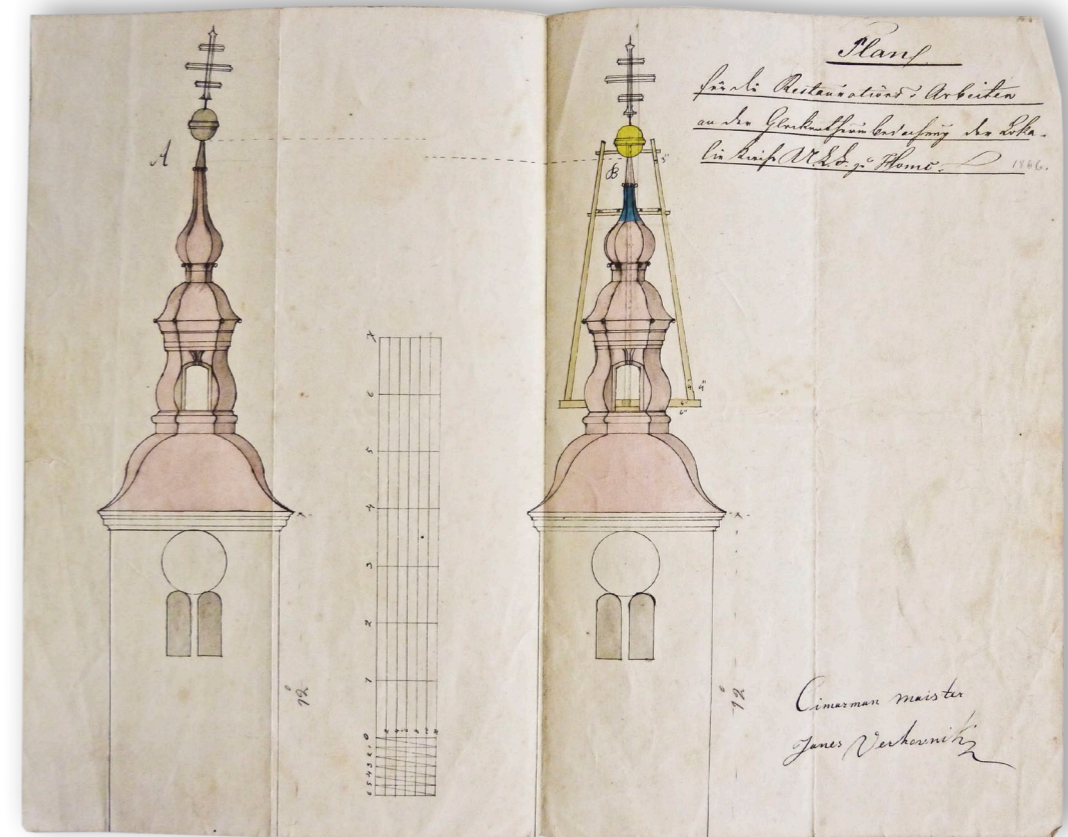 Plan
für die Restaurations-Arbeiten
an der Glockenthurmbedachung der Loka-
lie Kirche U.L.F. zu Homc. 1866.
A
B
5'
7
6
5
4
3
2
1
0
6 5 4 3 2 1 0
4" 4"
6"
12°
12°
Cimarman maister
Janes Verhovnik